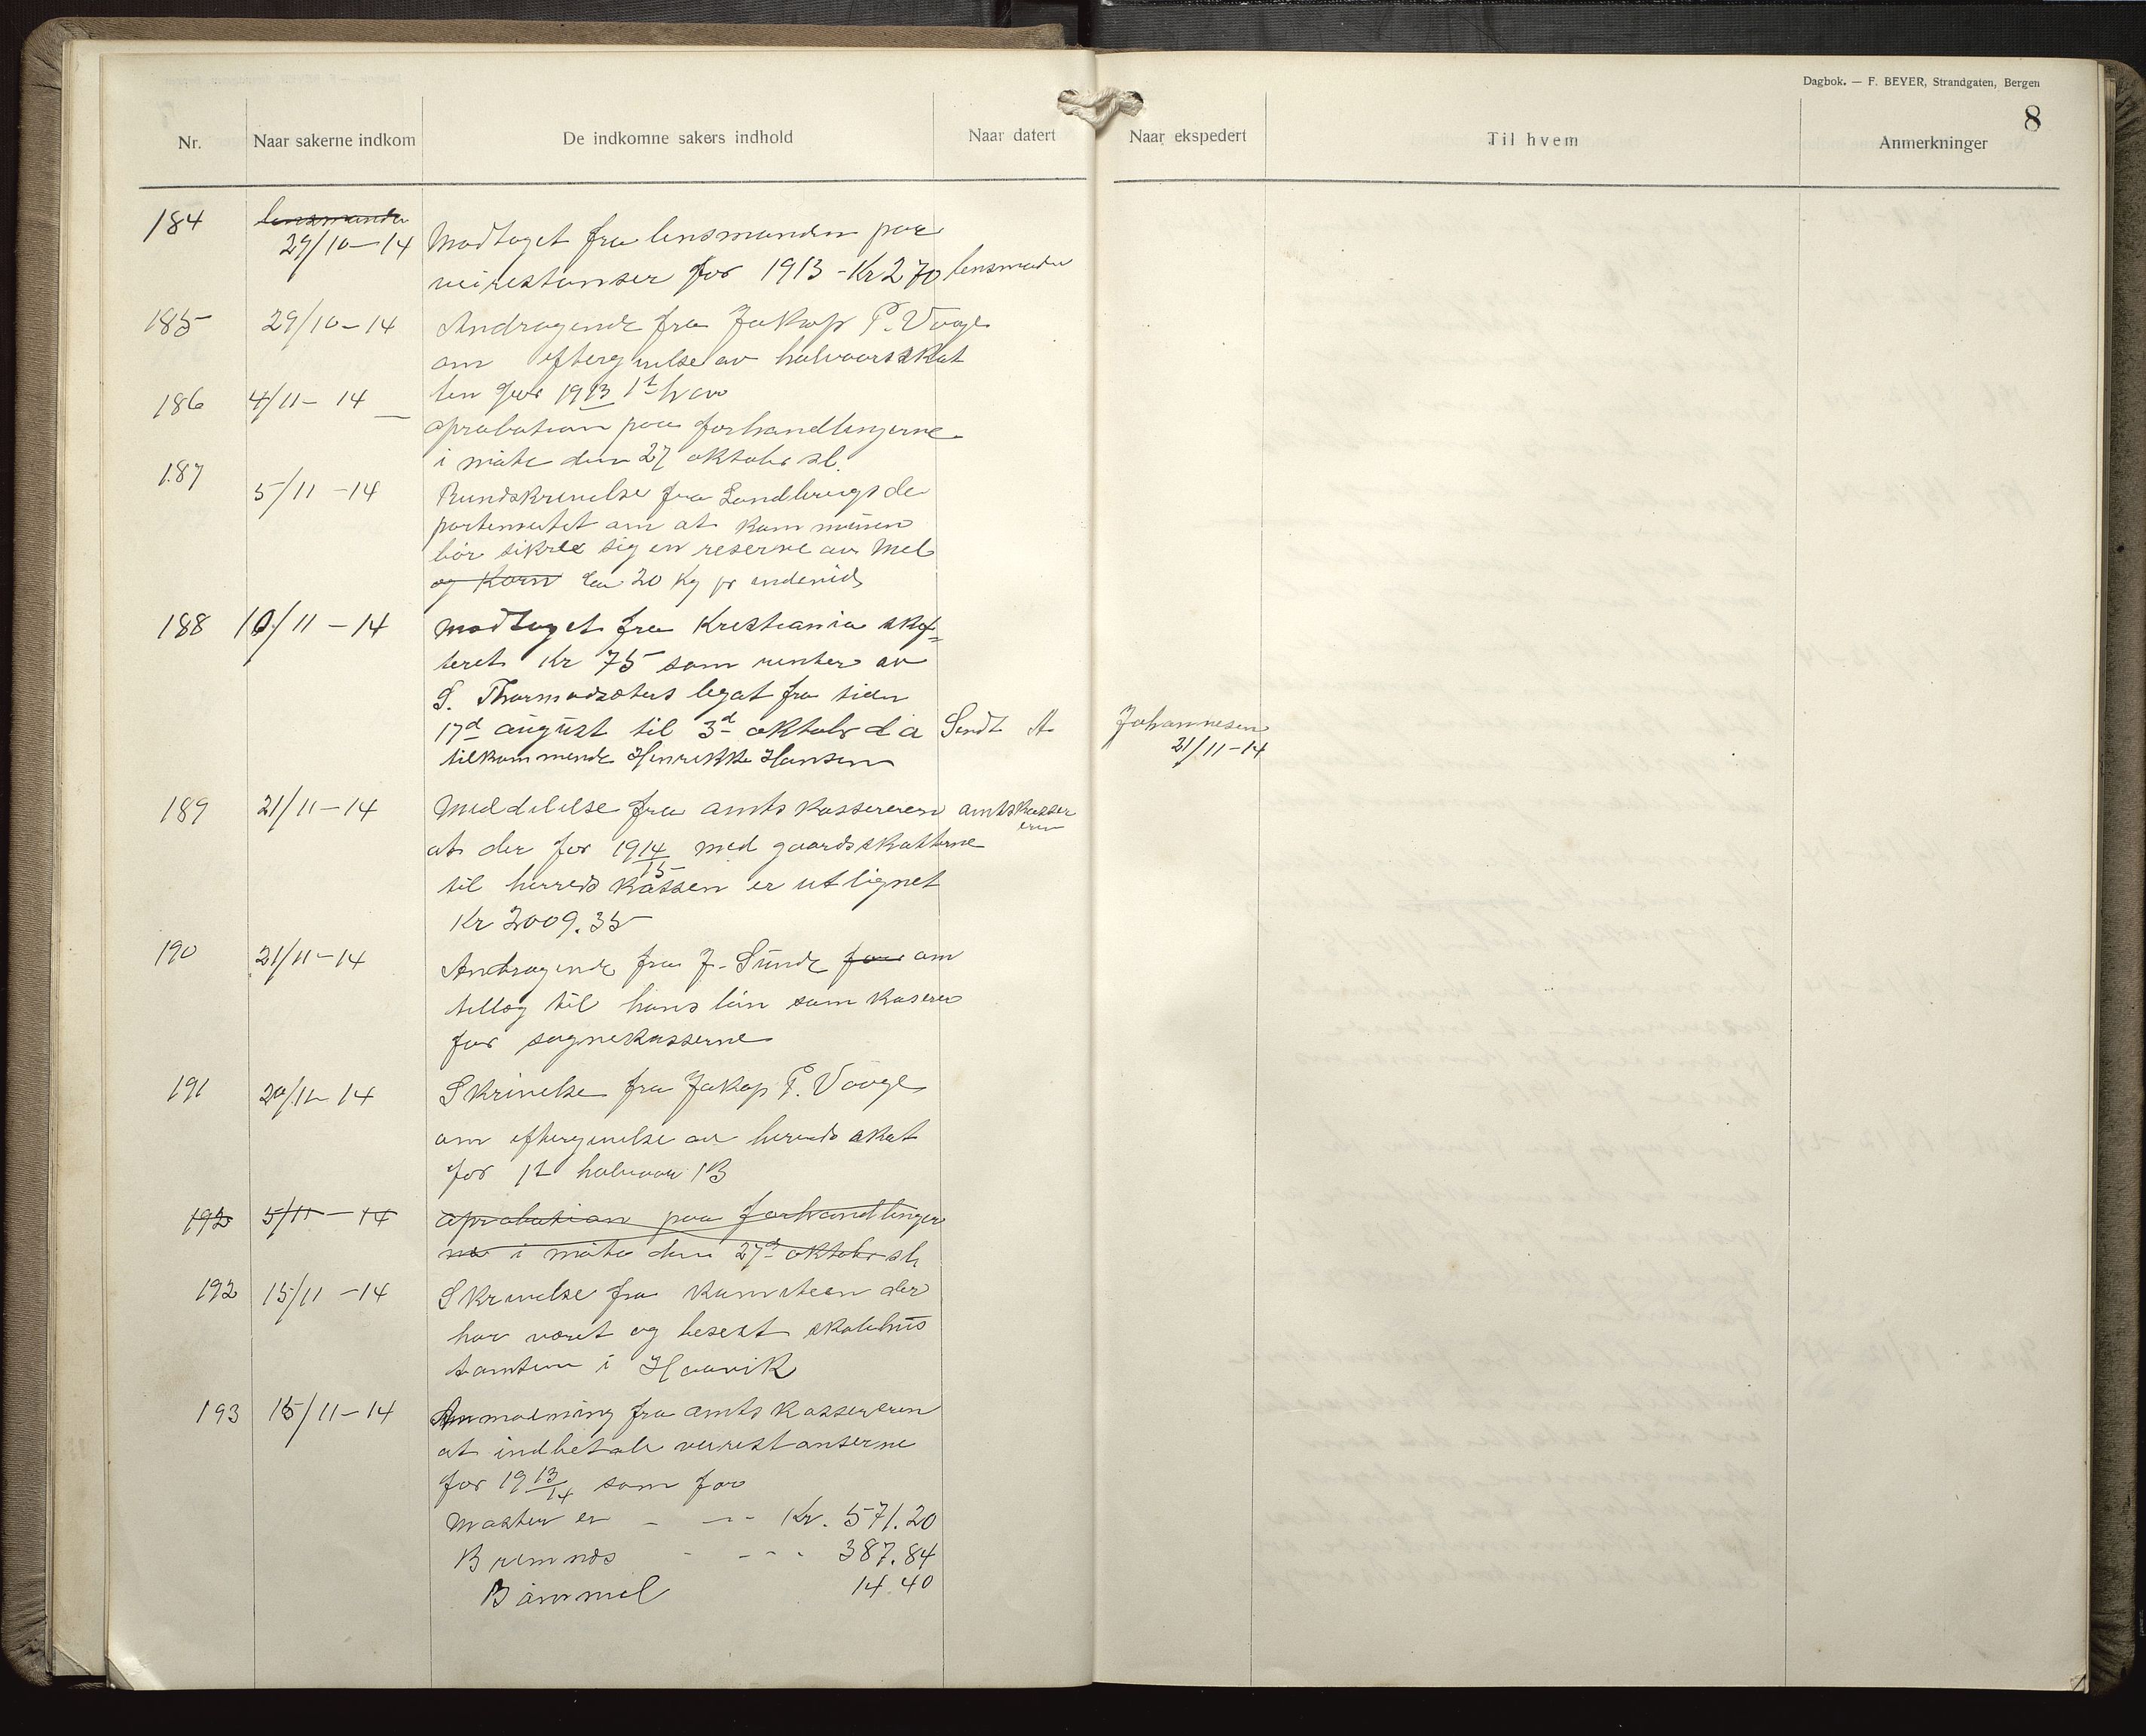 Dagbok. — F. BEYER, Strandgaten, Bergen
8
Nr. Naar sakerne indkom De indkomne sakers indhold Naar datert Naar ekspedert Til hvem Anmerkninger
184 lensmanden
29/10-14 Modtaget fra lensmanden paa
veirestanser for 1913 - Kr 270 lensmaden
185 29/10-14 Andragende fra Jakop P. Vaage
om eftergivelse av halvaarsskat
ten for 1913 1st hav
186 4/11-14 aprobation paa forhandlingerne
i møte den 27 oktober sl.
187 5/11-14 Rundskrivelse fra Landbrugsde
partementet om at kommunen
bør sikre sig en reserve av Mel
og Korn ca 20 Kg pr individ
188 10/11-14 modtaget fra Kristiania skif=
teret Kr 75 som renter av
S. Thormodsæters legat fra tiden
17d august til 3d oktober d a Sendt A. Johannesen
tilkommende Henrikke Hansen 21/11-14
189 21/11-14 Meddelelse fra amtskassereren amtskasser
eren
at der for 1914/15 med gaardsskatterne
til herredskassen er utlignet
Kr 2009.35
190 21/11-14 Andragende fra J. Sunde for om
tillæg til hans løn som kaserer
for sognekasserne
191 20/11-14 Skrivelse fra Jakop P. Vaage
om eftergivelse av herreds skat
for 1st halvaar 13
192 5/11-14 aprobation paa forhandlinger
ne i møte den 27d oktober sl,
192 15/11-14 Skrivelse fra der
har været og besekt skolehus
tomten i Haavik
193 15/11-14 Anmodning fra amtskassereren
at indbetale veirestanserne
for 1913/14 som for
Moster er - - - Kr. 571.20
Bremnes - - - - 387.84
Bømmel 14.40